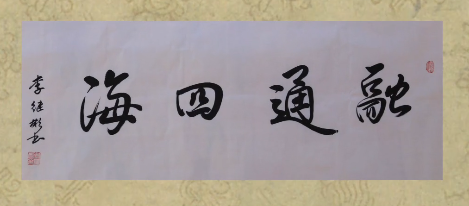 融通四海
李继彬书